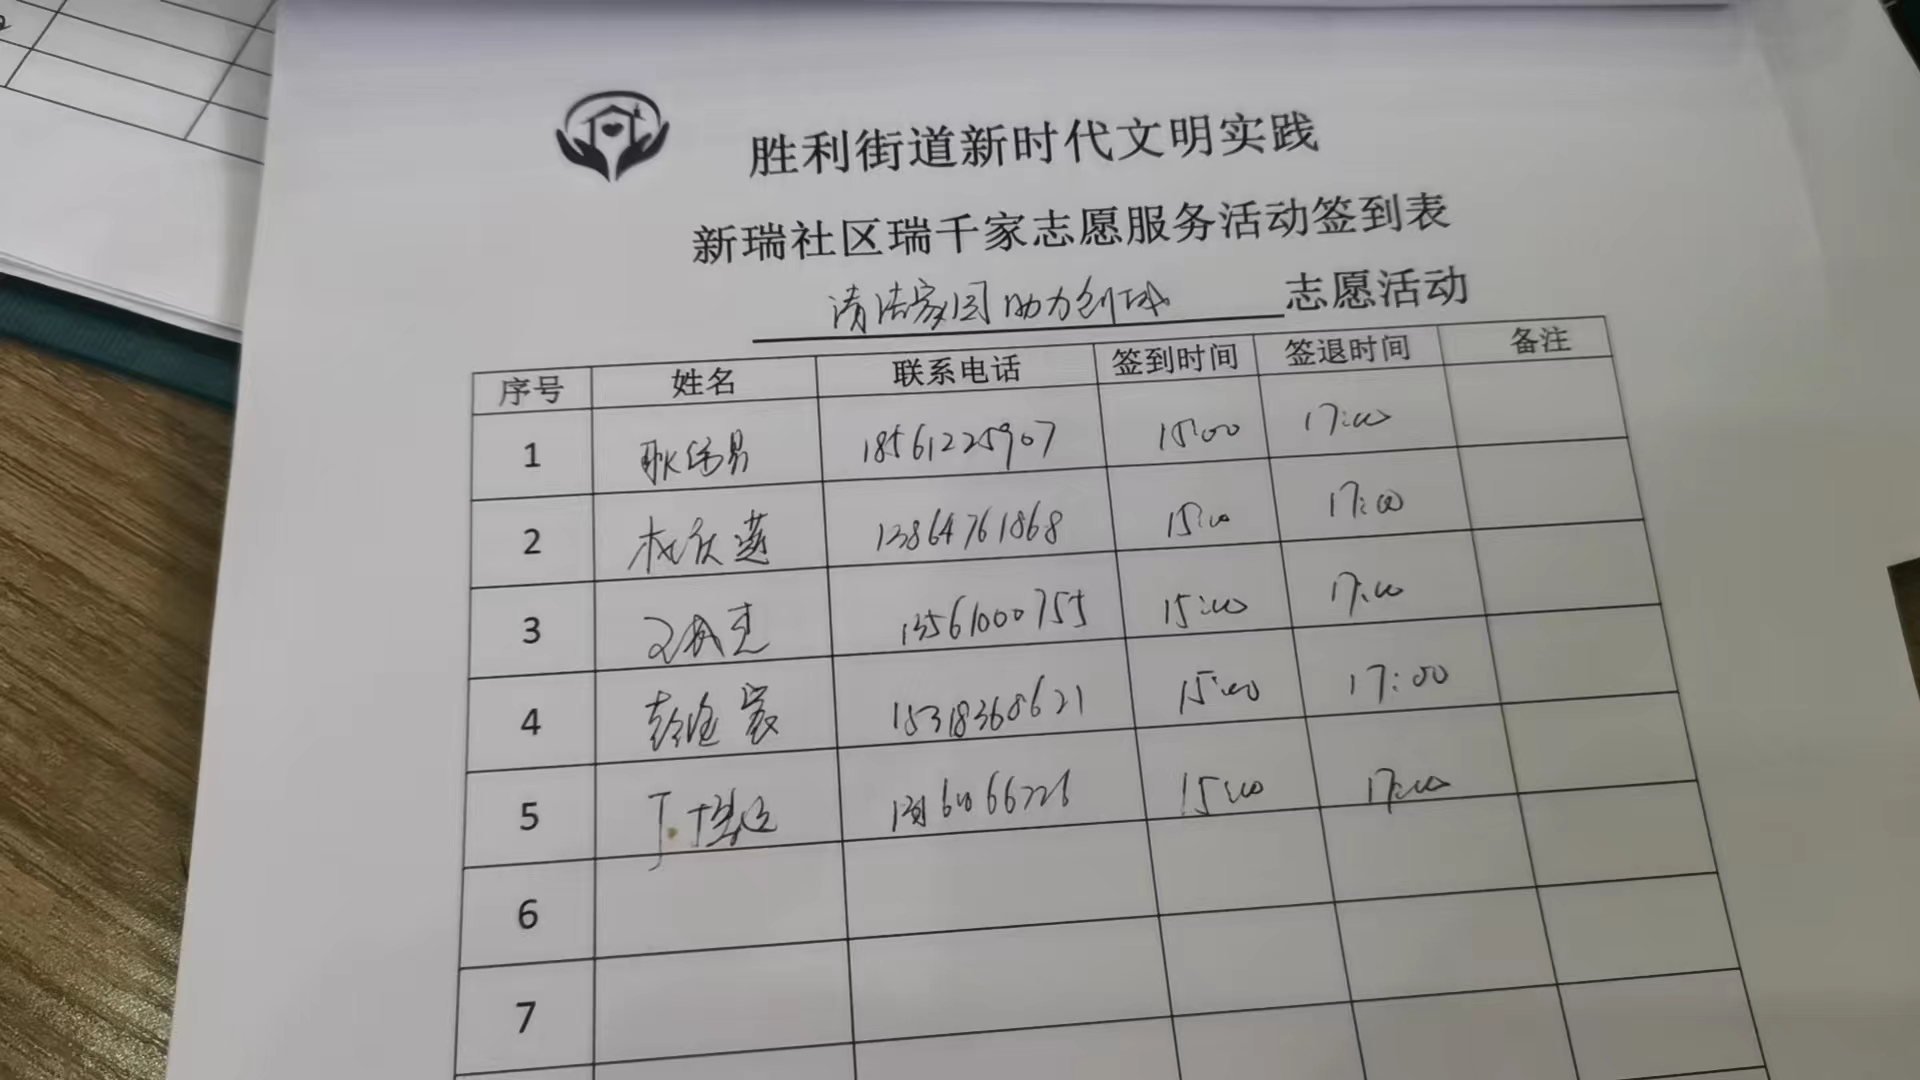 胜利街道新时代文明实践
新瑞社区瑞千家志愿服务活动签到表
清洁家园 助力创城 志愿活动
序号 姓名 联系电话 签到时间 签退时间 备注
1 18561225907 15:00 17:00
2 13864761868 15:00 17:00
3 13561000755 15:00 17:00
4 15318368621 15:00 17:00
5 15:00 17:00
6
7